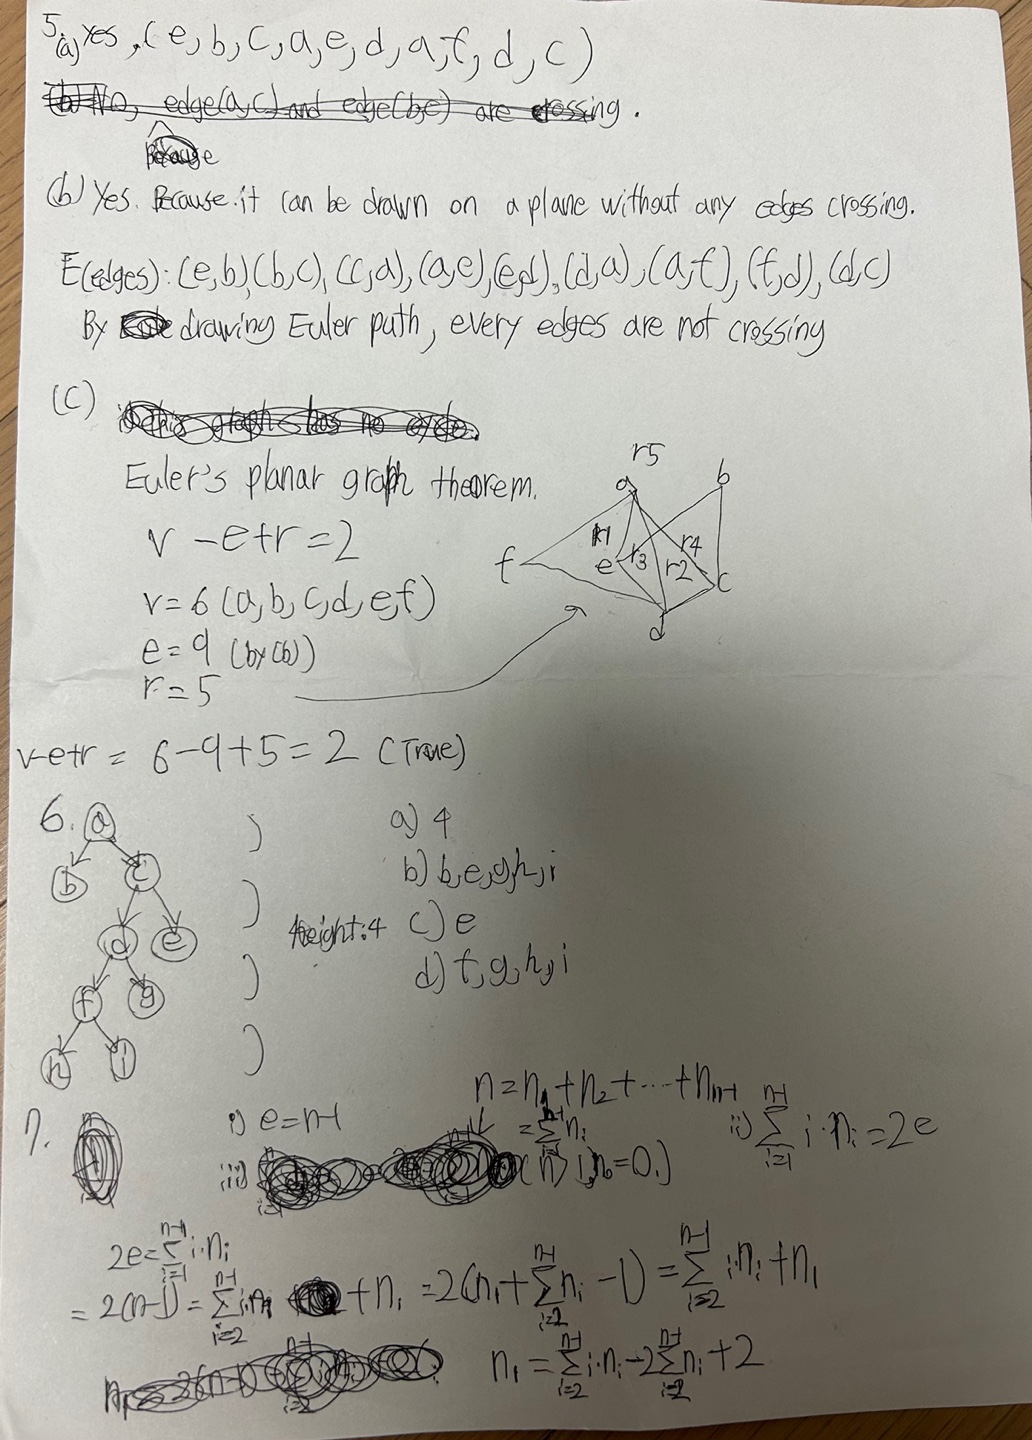 5. (a) Yes, (e, b, c, a, e, d, a, f, d, c)
(b) No, edge(a,c) and edge(b,e) are crossing.
Because
(b) Yes. Because it can be drawn on a plane without any edges crossing.
E(edges): (e,b), (b,c), (c,a), (a,e), (e,d), (d,a), (a,f), (f,d), (d,c)
By drawing Euler path, every edges are not crossing
(c)
This graph has no cycle.
Euler's planar graph theorem.
v - e + r = 2
v = 6 (a, b, c, d, e, f)
e = 9 (by (b))
r = 5
r5
a b
r1 r4
f e r3 r2 c
d
v-e+r = 6-9+5 = 2 (True)
6. a
b c
d e
f g
h i
Height: 4
a) 4
b) b, e, g, h, i
c) e
d) f, g, h, i
7.
i) e = n-1
n = n₁ + n₂ + ... + nₙ₋₁
= ∑ᵢ₌₁ⁿ⁻¹ nᵢ
(n>1, n₀=0.)
ii) ∑ᵢ₌₁ⁿ⁻¹ i·nᵢ = 2e
iii)
2e = ∑ᵢ₌₁ⁿ⁻¹ i·nᵢ
= 2(n-1) = ∑ᵢ₌₂ⁿ⁻¹ i·nᵢ + n₁ = 2(n₁ + ∑ᵢ₌₂ⁿ⁻¹ nᵢ - 1) = ∑ᵢ₌₂ⁿ⁻¹ i·nᵢ + n₁
n₁ = ∑ᵢ₌₂ⁿ⁻¹ i·nᵢ - 2∑ᵢ₌₂ⁿ⁻¹ nᵢ + 2